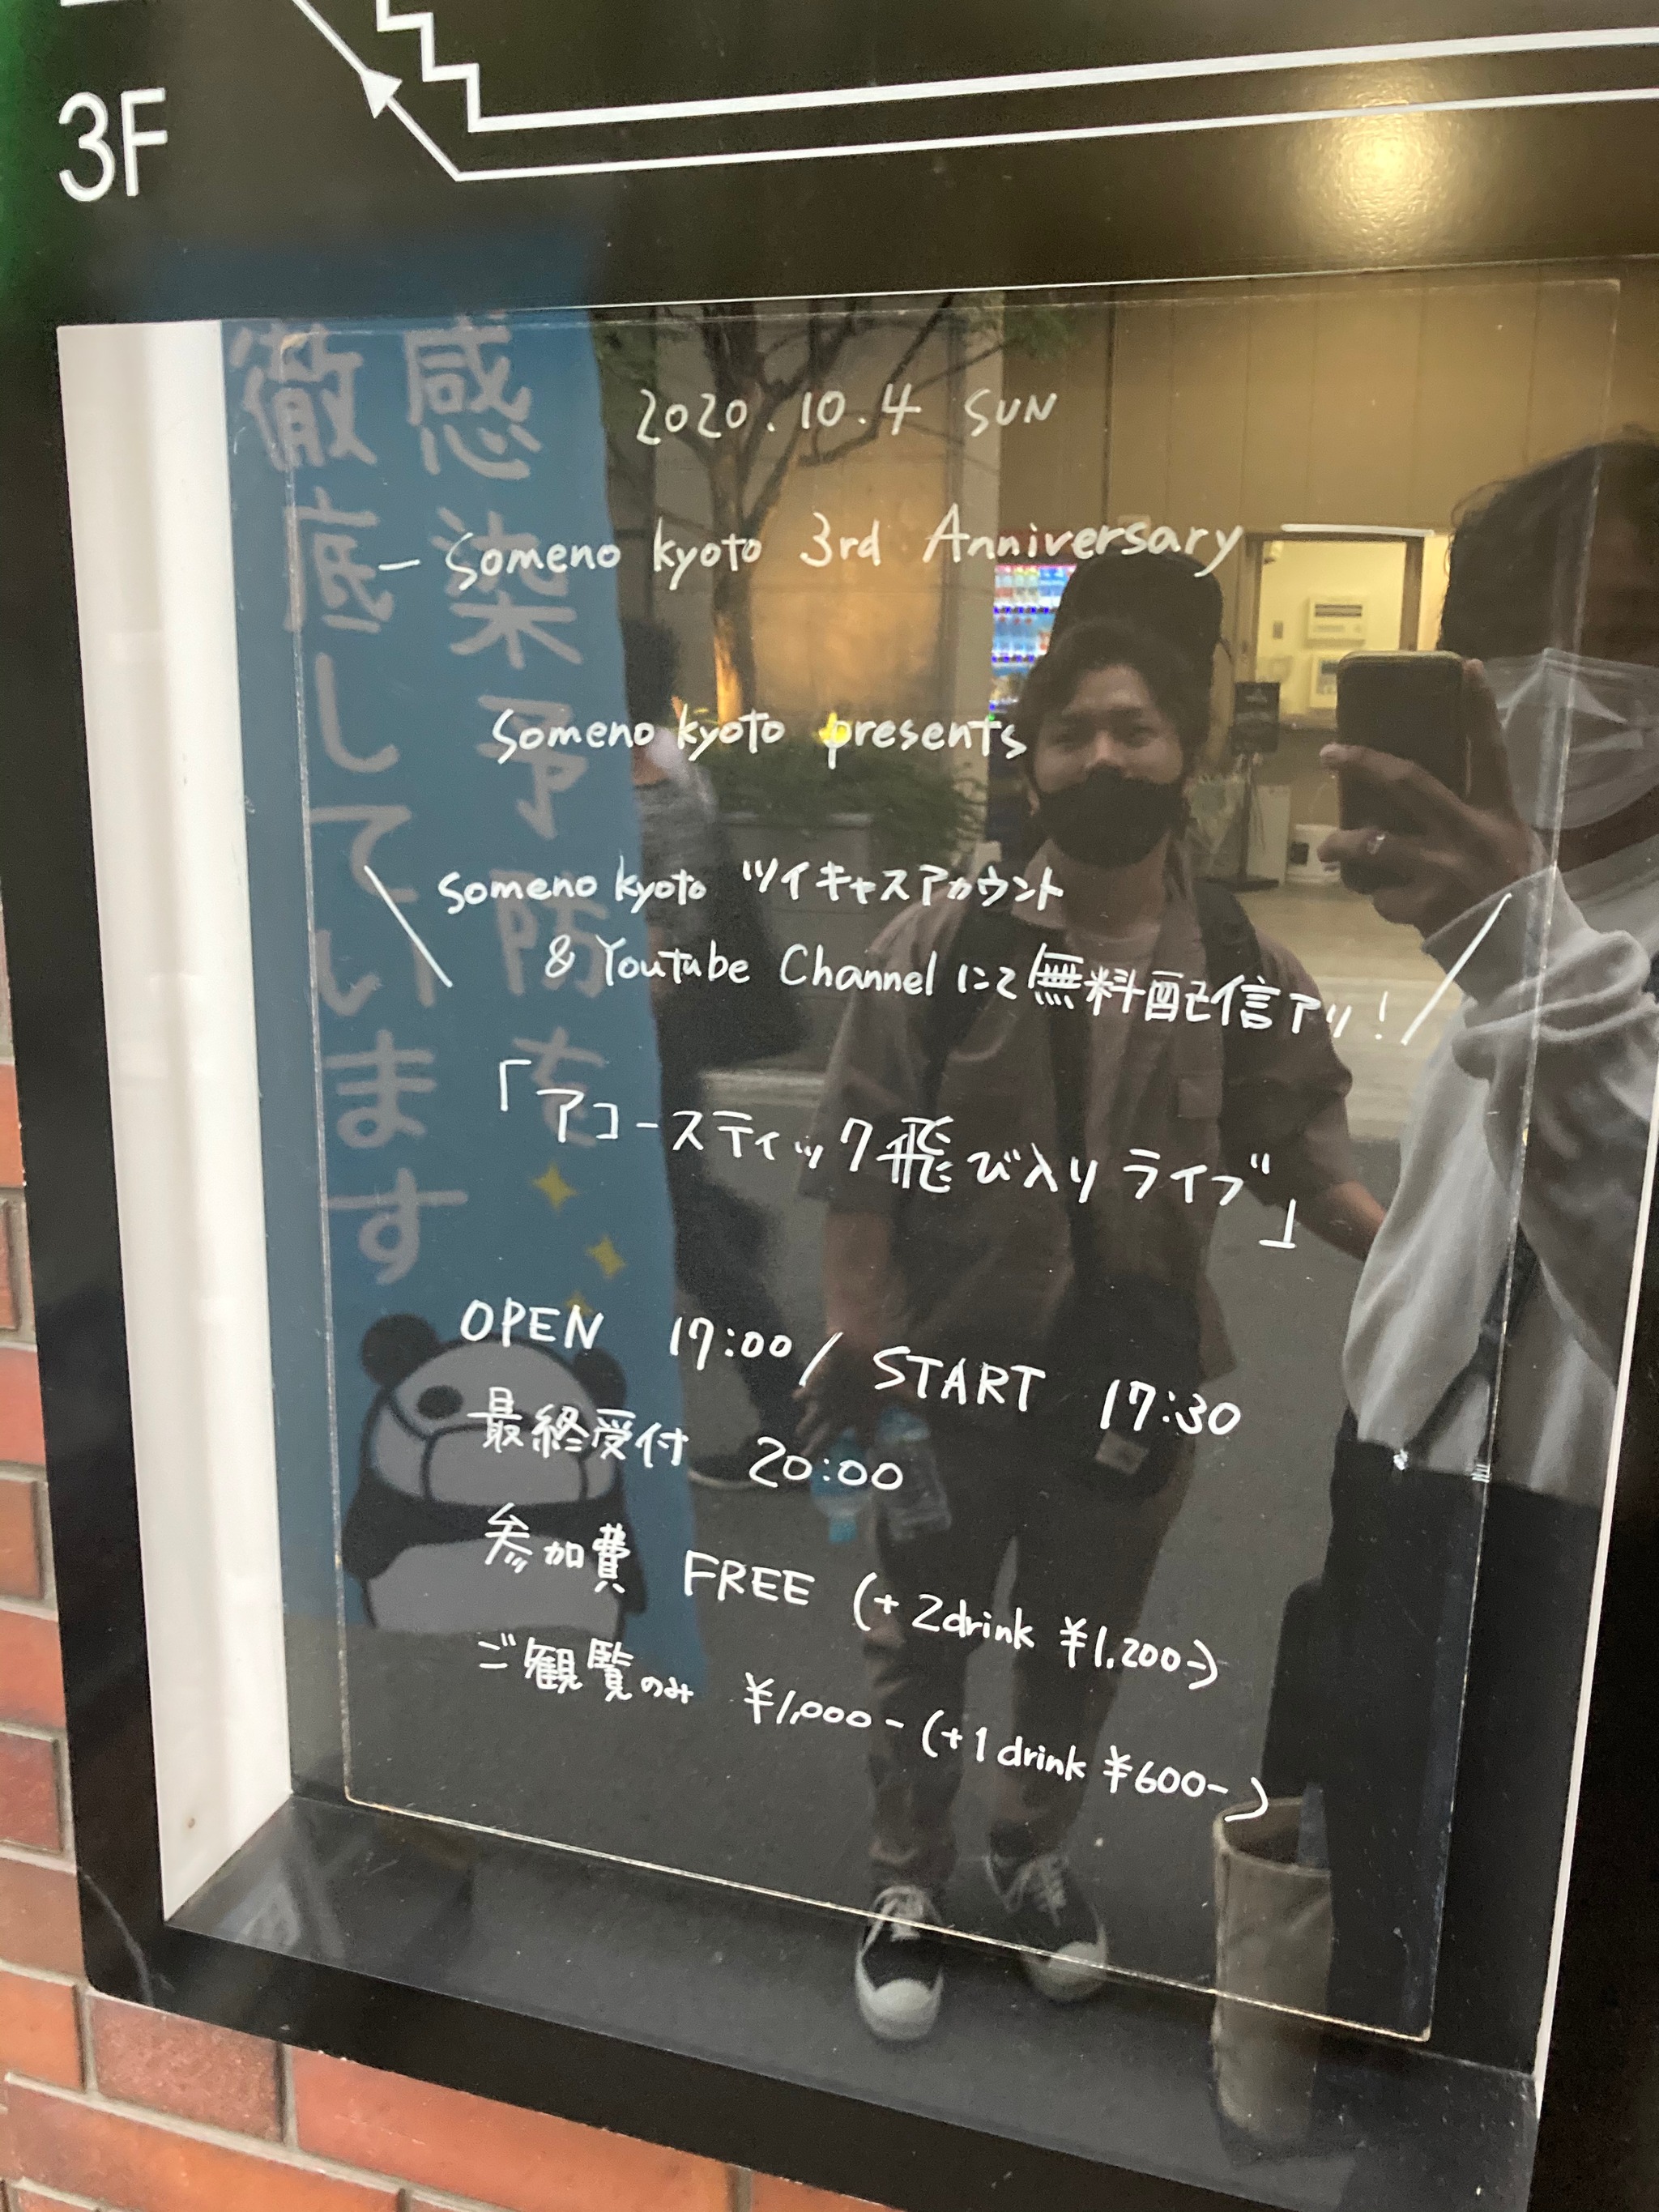 3F
感染予防を
徹底しています
2020.10.4 SUN
- Someno kyoto 3rd Anniversary
Someno kyoto presents
\ Someno kyoto ツイキャスアカウント
& Youtube Channel にて無料配信アリ! /
「アコースティック飛び入りライブ」
OPEN 17:00 / START 17:30
最終受付 20:00
参加費 FREE (+2drink ¥1,200-)
ご観覧のみ ¥1,000- (+1drink ¥600-)